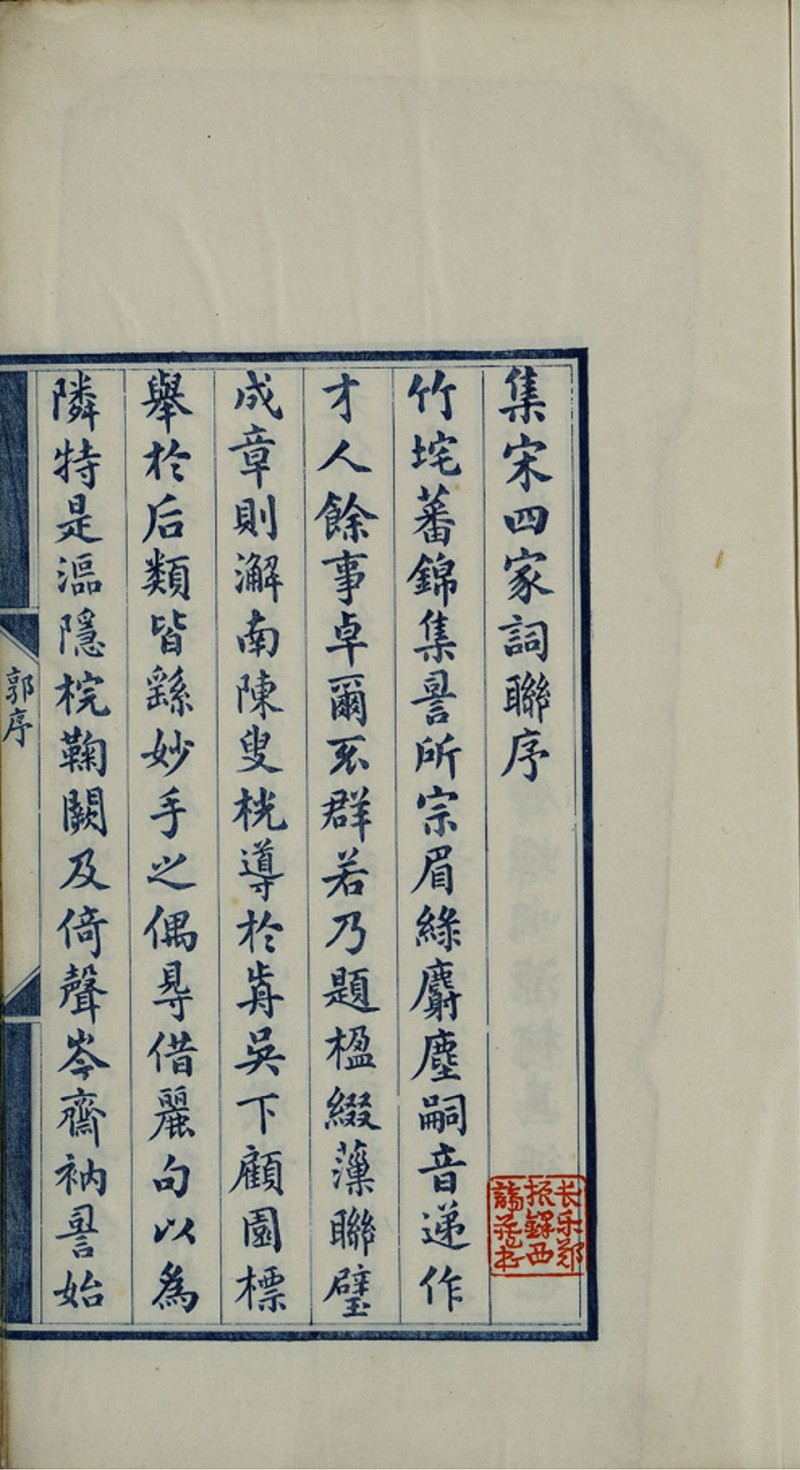 集宋四家詞聯序
竹垞蕃錦集㫿所宗眉綠麝塵嗣音递作
才人餘事卓爾不群若乃題楹綴藻聯璧
成章則澥南陳叟桄導於歬吳下顧園標
舉於后類皆繇妙手之偶㝵借麗句以為
隣特是漚隱梡鞠闕及倚聲岑齋衲㫿始
郭序
长乐郑
振铎西
谛藏书